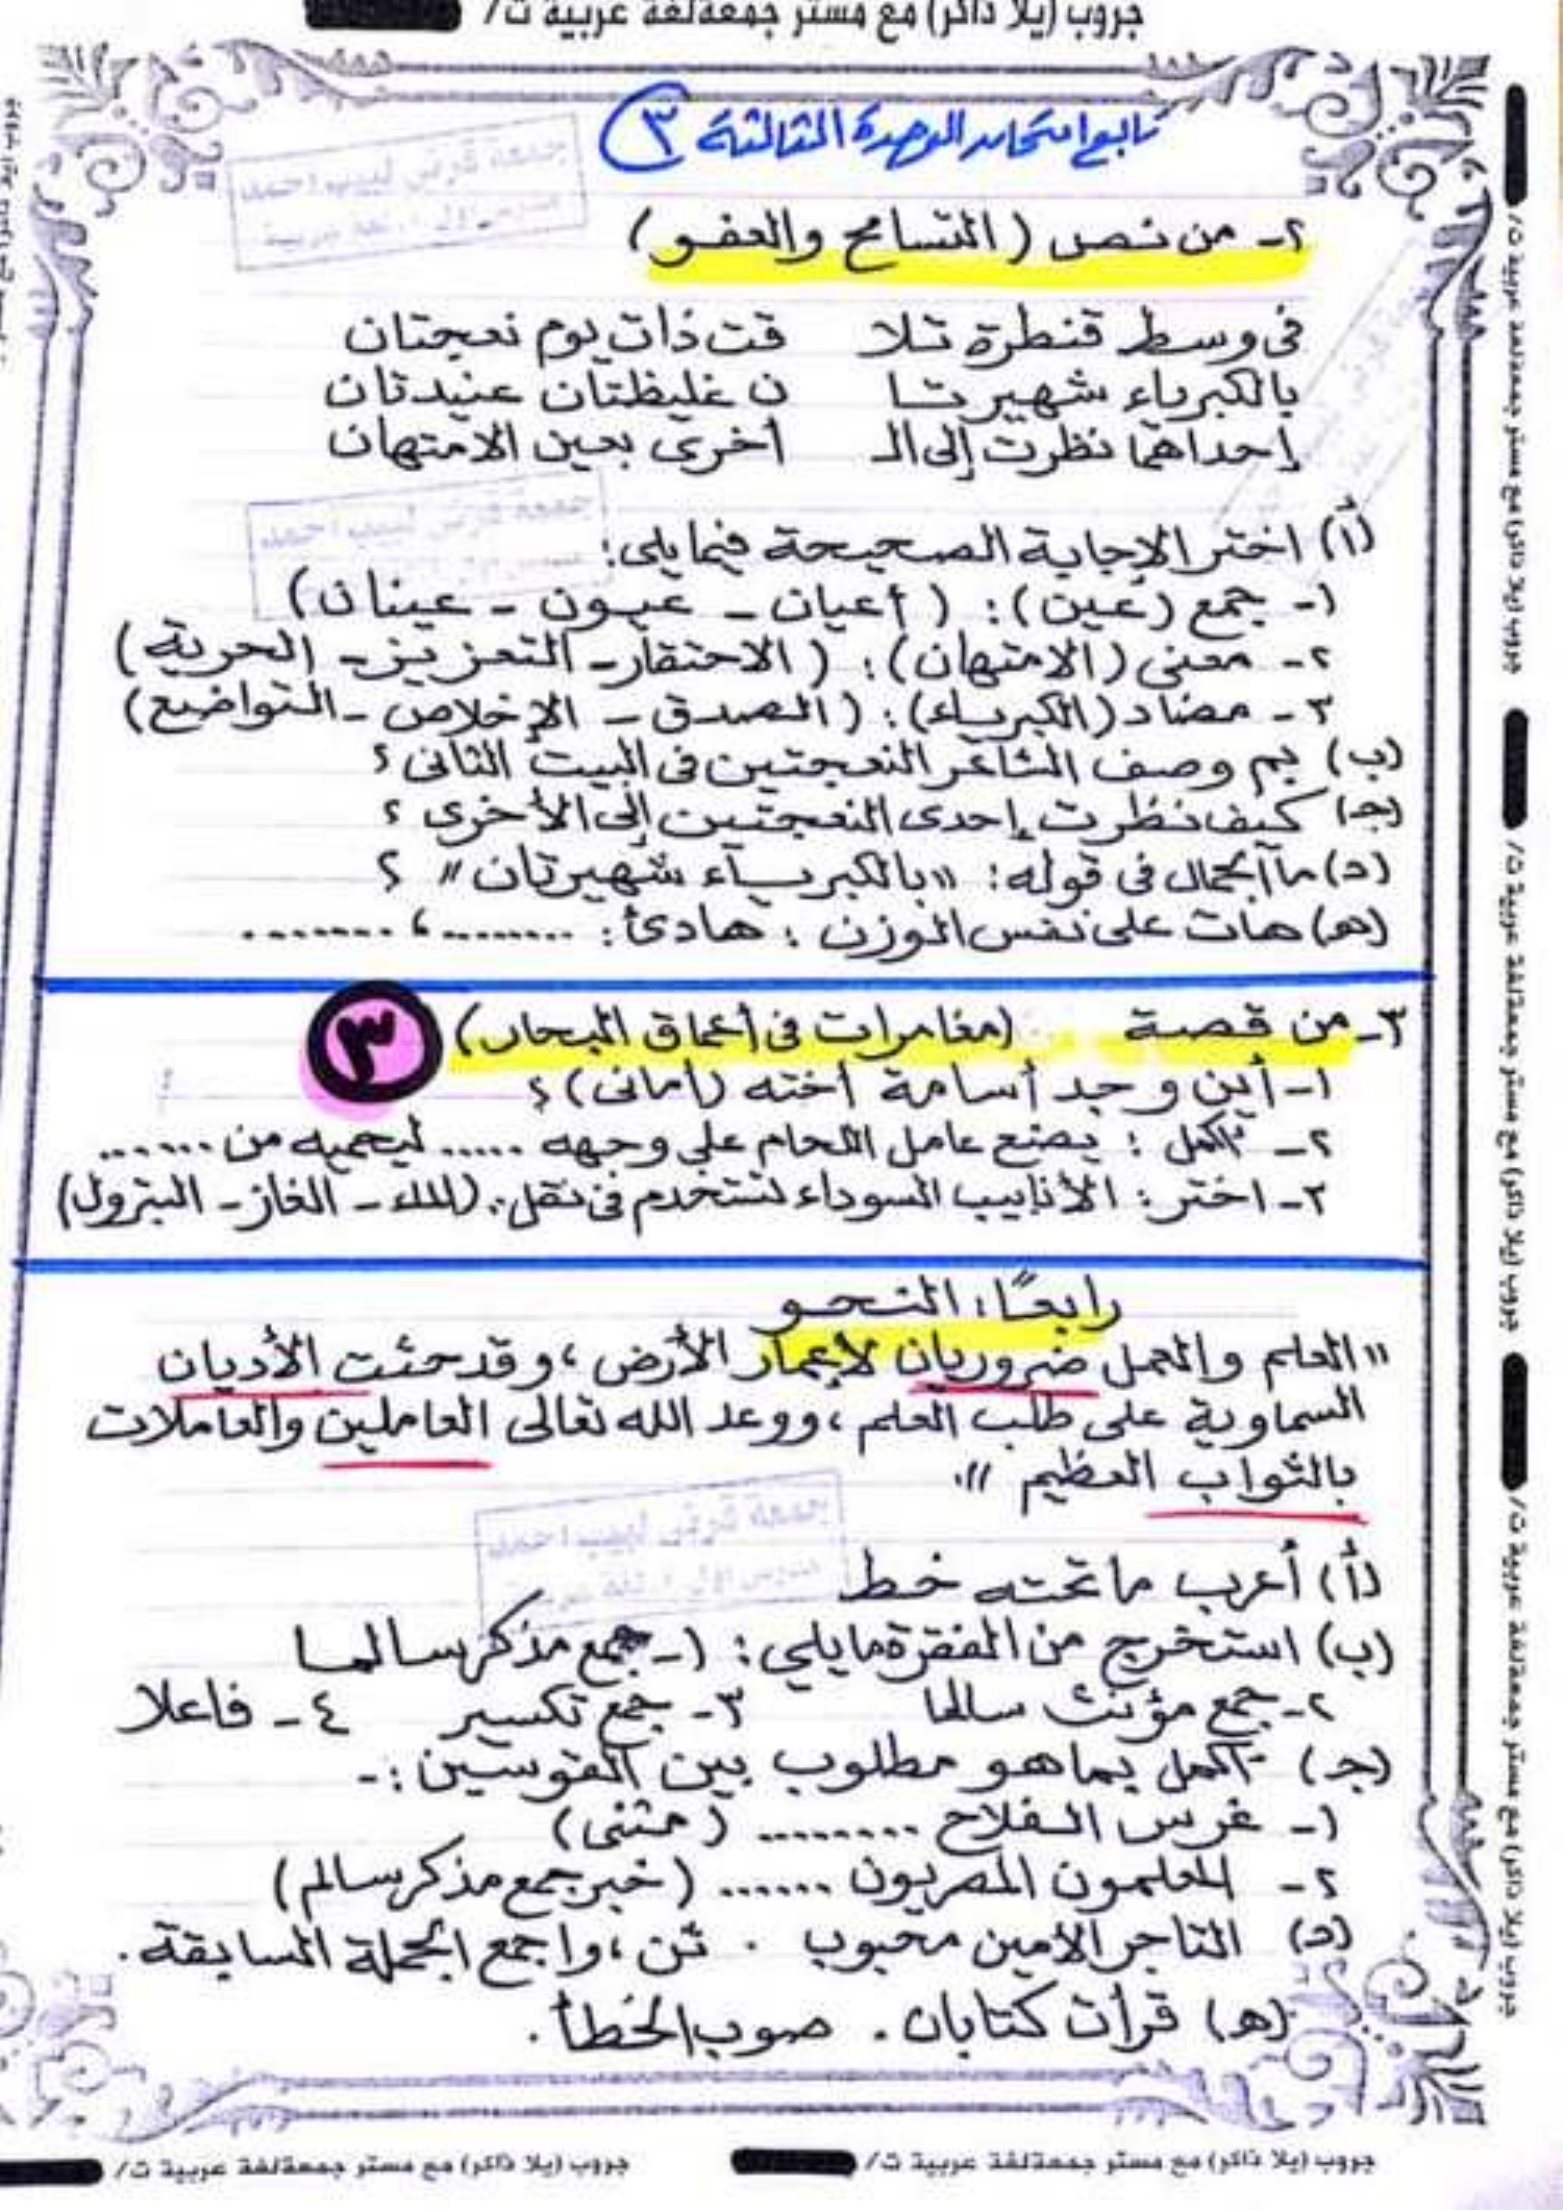 جروب (يلا ذاكر) مع مستر جمعة لغة عربية ت/
تابع امتحان الوحدة الثالثة ٣
٢- من نص (التسامح والعفو)
فى وسط قنطرة تلا قت ذات يوم نعجتان
بالكبرياء شهيرتا ن غليظتان عنيدتان
إحداهما نظرت إلى الـ أخرى بعين الامتهان
(أ) اختر الإجابة الصحيحة فيما يلى:
١- جمع (عين): (أعيان - عيون - عينان)
٢- معنى (الامتهان): (الاحتقار - التعزيز - الحرية)
٣- مضاد (الكبرياء): (الصدق - الإخلاص - التواضع)
(ب) بم وصف الشاعر النعجتين فى البيت الثانى؟
(جـ) كيف نظرت إحدى النعجتين إلى الأخرى؟
(د) ما الجمال فى قوله: "بالكبرياء شهيرتان"؟
(هـ) هات على نفس الوزن: هادئ: ......... ، .........
٣- من قصة (مغامرات فى أعماق البحار) ٣
١- أين وجد أسامة أخته (أمانى)؟
٢- أكمل: يضع عامل اللحام على وجهه ...... ليحميه من .......
٣- اختر: الأنابيب السوداء تستخدم فى نقل: (الماء - الغاز - البترول)
رابعًا: النحو
"العلم والعمل ضروريان لإعمار الأرض، وقد حثت الأديان
السماوية على طلب العلم، ووعد الله تعالى العاملين والعاملات
بالثواب العظيم".
(أ) أعرب ما تحته خط
(ب) استخرج من الفقرة ما يلى: ١- جمع مذكر سالما
٢- جمع مؤنث سالما ٣- جمع تكسير ٤- فاعلا
(جـ) أكمل بما هو مطلوب بين القوسين:-
١- غرس الفلاح ......... (مثنى)
٢- المعلمون المصريون ...... (خبر جمع مذكر سالم)
(د) التاجر الأمين محبوب . ثن، واجمع الجملة السابقة.
(هـ) قرأت كتابان. صوب الخطأ.
جروب (يلا ذاكر) مع مستر جمعة لغة عربية ت/
جروب (يلا ذاكر) مع مستر جمعة لغة عربية ت/
جروب (يلا ذاكر) مع مستر جمعة لغة عربية ت/
جروب (يلا ذاكر) مع مستر جمعة لغة عربية ت/
جروب (يلا ذاكر) مع مستر جمعة لغة عربية ت/
جمعة قرنى لبيب احمد
جمعة قرنى لبيب احمد
جمعة قرنى لبيب احمد